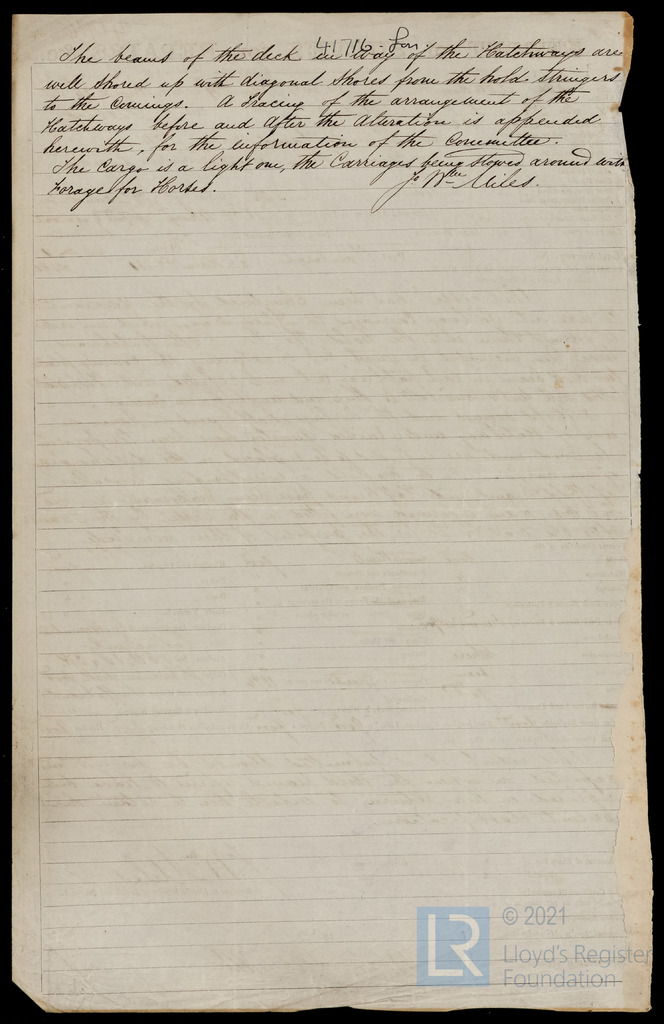 41716 Lon
The beams of the deck in way of the Hatchways are
well shored up with diagonal shores from the hold stringers
to the Comings. A Tracing of the arrangement of the
Hatchways before and after the alteration is appended
herewith, for the information of the Committee.
The Cargo is a light one, the Carriages being stowed around with
Forage for Horses.
Wm Miles.
© 2021
LR
Lloyd's Register
Foundation